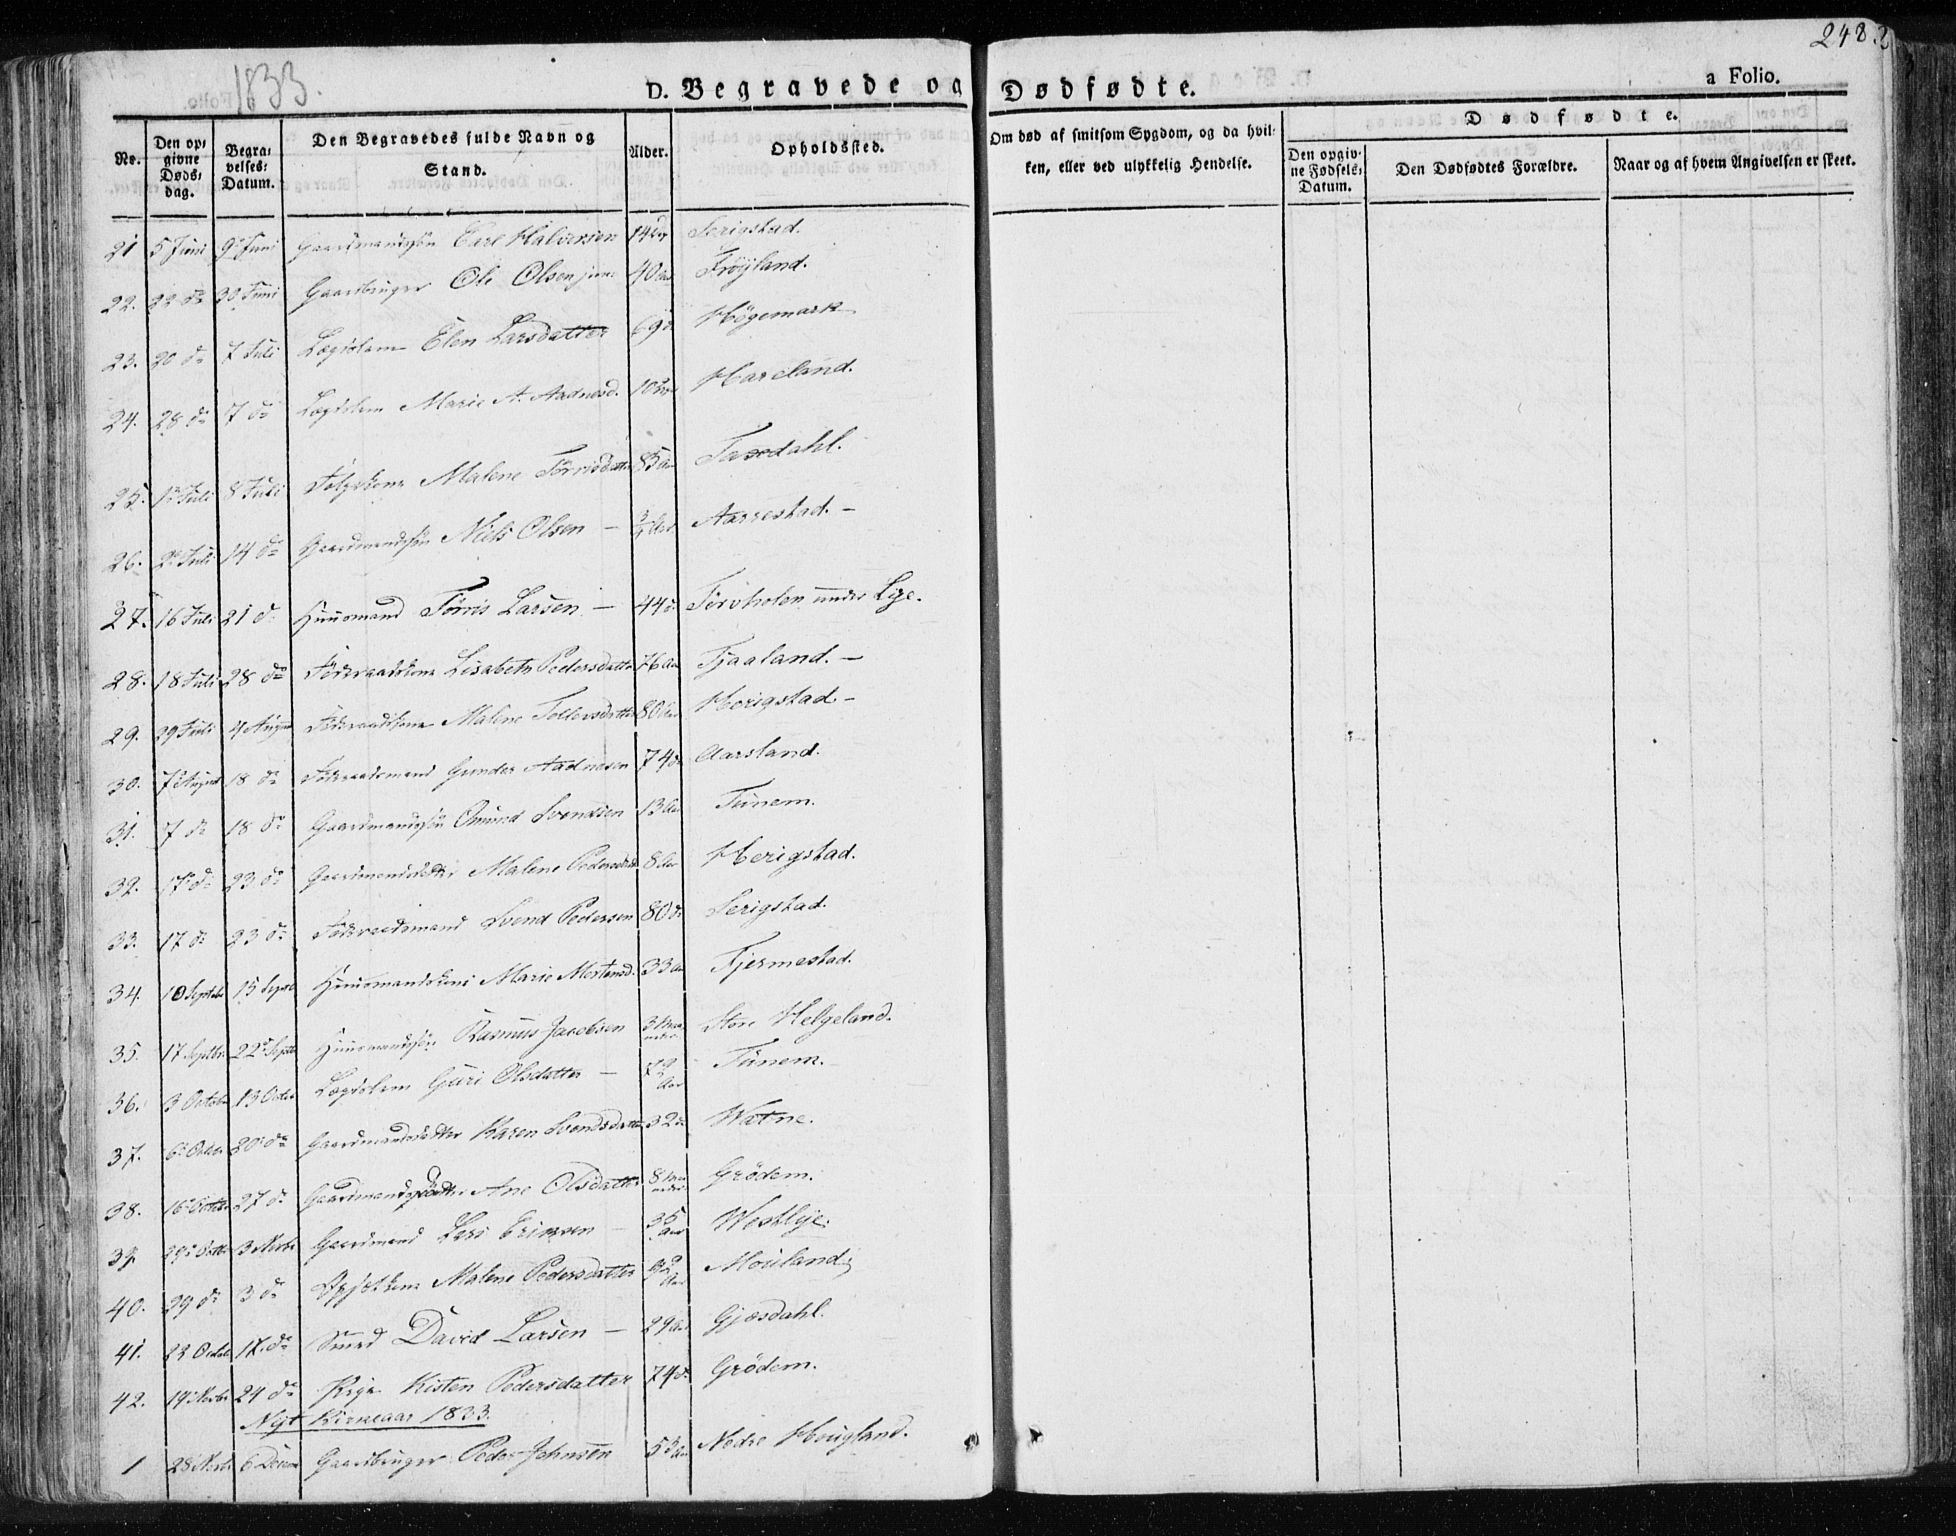 1833.
248.2
D. Begravede og Dødfødte.
a Folio.
No. Den opgivne Døds-dag. Begravelses-Datum. Den Begravedes fulde Navn og Stand. Alder. Opholdssted. Om død af smitsom Sygdom, og da hvilken, eller ved ulykkelig Hendelse. Dødfødte. Den opgivne Fødsels-Datum. Den Dødfødtes Forældre. Naar og af hvem Angivelsen er skeet.
21 5 Juni 9 Juni Gaardmandssön Halvorsen Serigstad.
22. 22 do 30 Juni Gaardbruger Ole Olsen jun. 40 Aar Fröyland.
23. 20 do 7 Juli Lægdslem Elen Larsdatter 69 do Högemark
24. 28 do 7 do Lægdslem Marie A. Aadnesd. Hareland.
25. 1 Juli 8 Juli Malene Törrisdatter 85 Aar Taxdahl.
26. 2 Juli 14 do Gaardmandssön Niels Olsen – 3/4 Aar Aarrestad. –
27. 16 Juli 21 do Huusmand Törris Larsen – 44 do Törvholen under Lye.
28. 18 Juli 28 do Föderaadskone Lisabeth Pedersdatter 76 Aar Tjaaland. –
29. 29 Juli 4 August Föderaadskone Malene Tollevsdatter 80 Aar Herigstad –
30. 7 August 18 do Föderaadsmand Gunder Aadnesen 74 do Aarsland.
31. 7 do 18 do Gaardmandssön Omund Svendsen 13 Aar Tunem.
32. 17 do 23 do Gaardmandsdatter Malene Pedersdatter 8 Aar Herigstad.
33. 17 do 23 do Föderaadsmand Svend Pedersen 80 do Serigstad.
34. 10 Septebr 15 Septb Huusmandskone Marie Mortensd. 33 Aar Fjermestad.
35. 17 Septbr 22 Septb Huusmandssön Rasmus Jacobsen 3 Maaneder Store Helgeland.
36. 3 Octobr 13 Octob Lægdslem Guri Olsdatter – Aar Tunem.
37. 6 Octobr 20 do Gaardmandsdatter Karen Svendsdatter 32 do Watne.
38. 16 Octbr 27 do Gaardmandsdatter Ane Olsdatter 8 Maaneder Grödem.
39. 29 Octbr 3 Novbr Gaardmand Lars Erixsen – 35 Aar Westlye.
40. 29 do 3 do Malene Pedersdatter Aar Mouland,
41. 23 Octob 17 do Smed David Larsen – 29 Aar Gjæsdahl.
42. 19 Novbr 24 do Kisten Pedersdatter 74 do Grödem.
Nyt Kirkeaar 1833.
1 28 Novbr 6 Decem Gaardbruger Peder Johnsen 53 Aar Nedre Hougland.